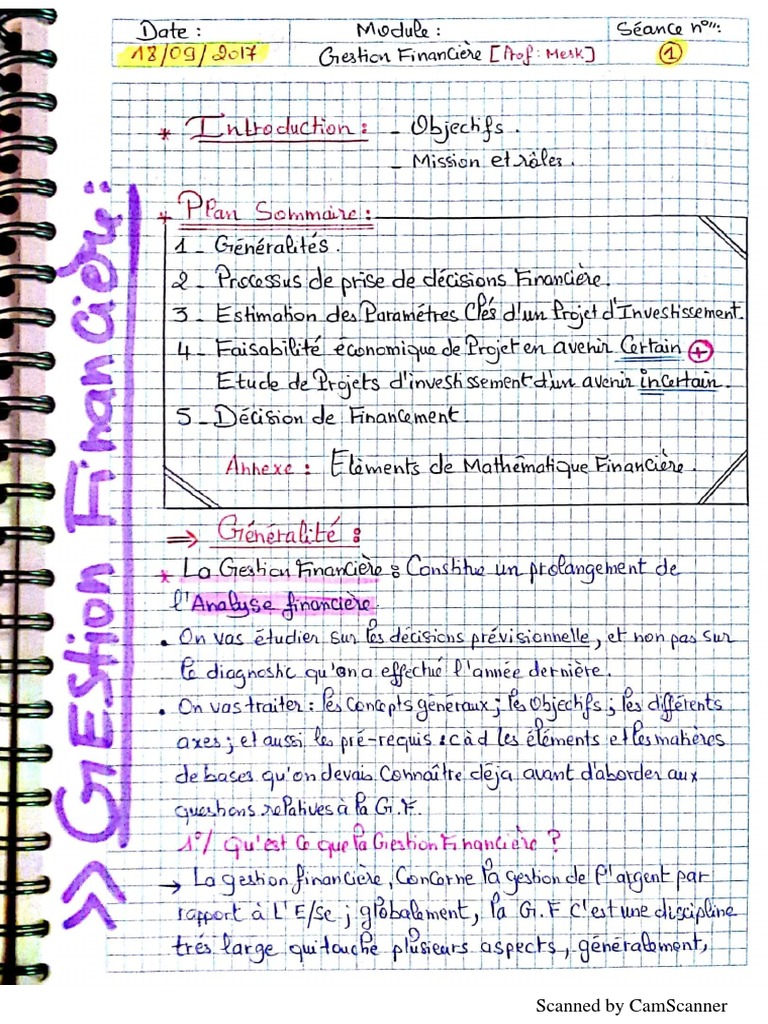 Date : Module : Séance n° :
18/09/2017 Gestion Financière [Prof : Mesk] 1
* Introduction : - Objectifs .
- Mission et rôles .
* Plan Sommaire :
1 - Généralités .
2 - Processus de prise de décisions Financière.
3 - Estimation des Paramétres Clés d'un Projet d'Investissement.
4 - Faisabilité économique de Projet en avenir Certain +
Etude de Projets d'investissement d'un avenir incertain .
5 - Décision de Financement
Annexe : Eléments de Mathématique Financière .
⇒ Généralité :
* La Gestion Financière : Constitue un prolangement de
l'Analyse financière.
• On vas étudier sur les décisions prévisionnelle, et non pas sur
le diagnostic qu'on a effectué l'année dernière.
• On vas traiter : les Concepts généraux ; les Objectifs ; les différents
axes ; et aussi les pré-requis : càd les éléments et les matières
de bases qu'on devais Connaître déja avant d'aborder aux
questions relatives à la G.F.
1°/ Qu'est ce que la Gestion Financière ?
→ La gestion financière, Concerne la gestion de l'argent par
rapport à L'E/se ; globalement, la G.F c'est une discipline
trés large qui touche plusieurs aspects, généralement,
>> GEstion Financière :
Scanned by CamScanner